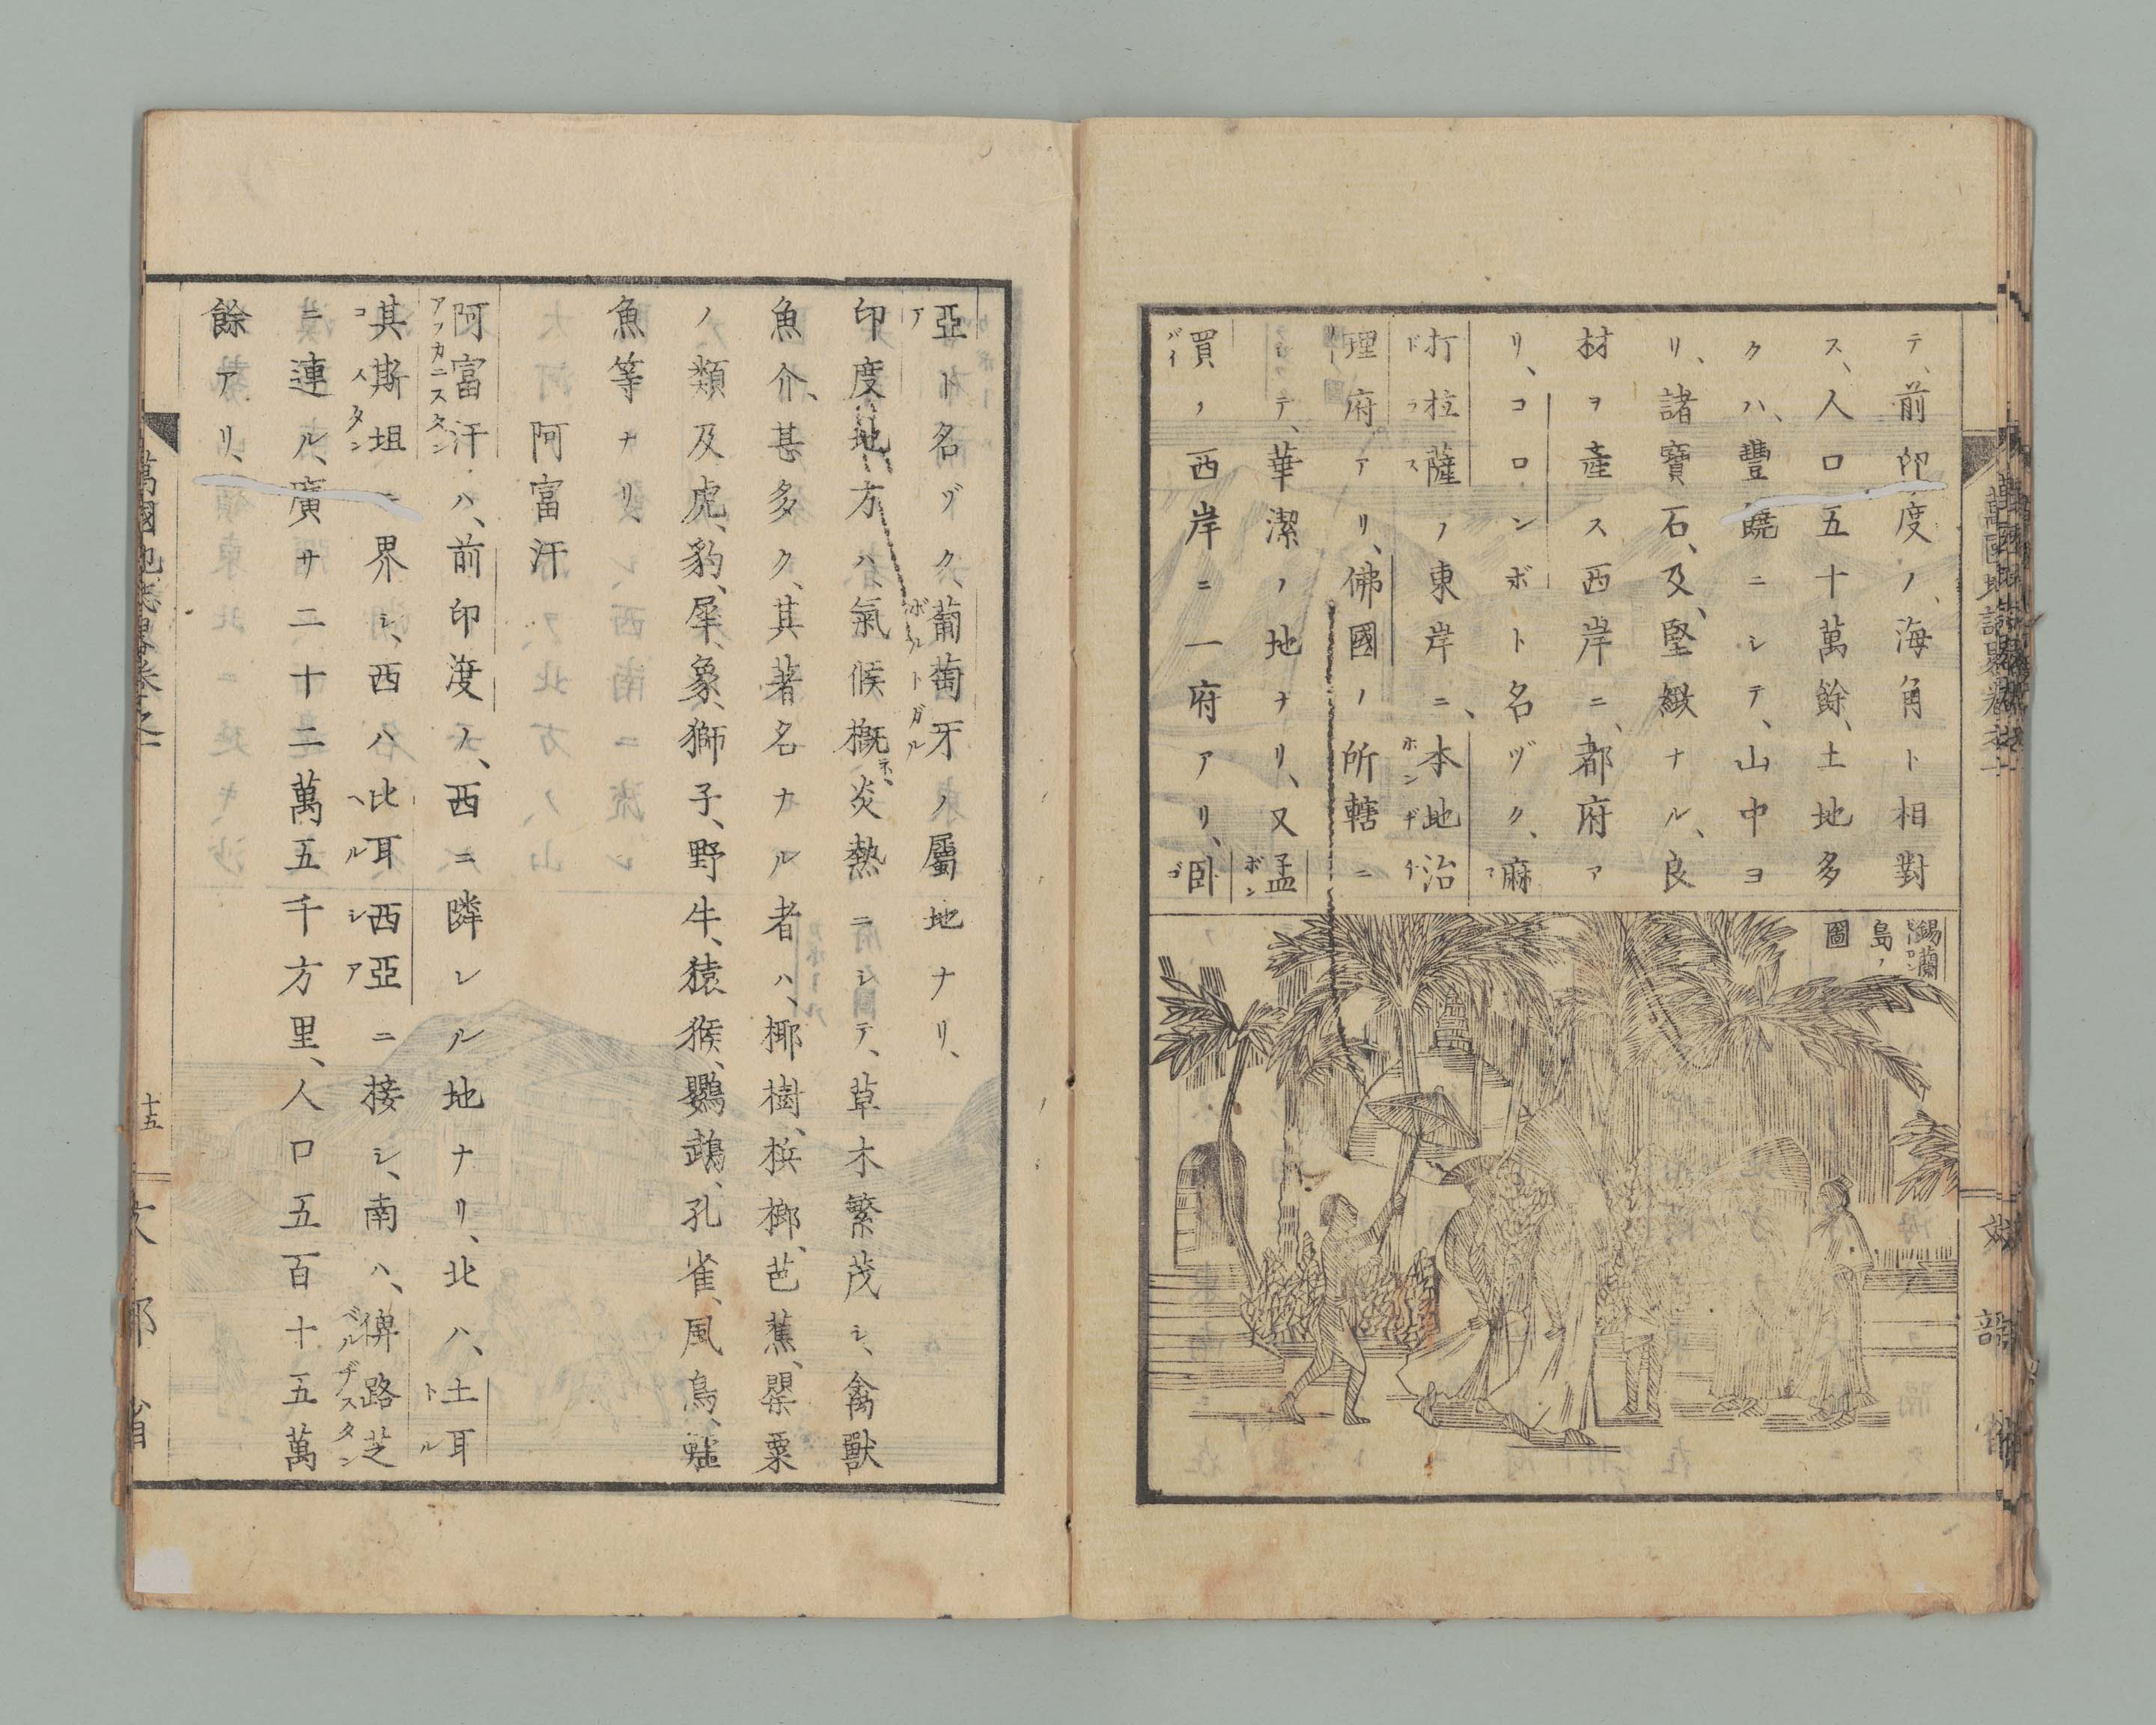 テ、前印度ノ、海角ト相對
ス、人口五十萬餘、土地多
クハ、豐饒ニシテ、山中ヨ
リ、諸寶石、及、堅緻ナル、良
材ヲ產ス西岸ニ、都府ア
リ、コロンボト名ヅク、麻
打拉薩ノ東岸ニ、本地治
理府アリ、佛國ノ所轄ニ
テ、華潔ノ地ナリ、又孟
買ノ西岸ニ一府アリ、卧
錫蘭
島ノ
圖
亞ト名ヅク、葡萄牙ノ屬地ナリ、
印度地方ハ、氣候概ネ、炎熱ニシテ、草木繁茂シ、禽獸
魚介、甚多ク、其著名ナル者ハ、椰樹、檳榔、芭蕉、罌粟
ノ類及虎、豹、犀、象、獅子、野牛、猿猴、鸚鵡、孔雀、風鳥、鱷
魚等ナリ、
阿富汗
阿富汗ハ、前印度ノ、西ニ隣レル地ナリ、北ハ、土耳
其斯坦ニ界シ、西ハ比耳西亞ニ接シ、南ハ、俾路芝
ニ連ル、廣サ二十二萬五千方里、人口五百十五萬
餘アリ、
萬國地誌畧卷之二
十五
文部省